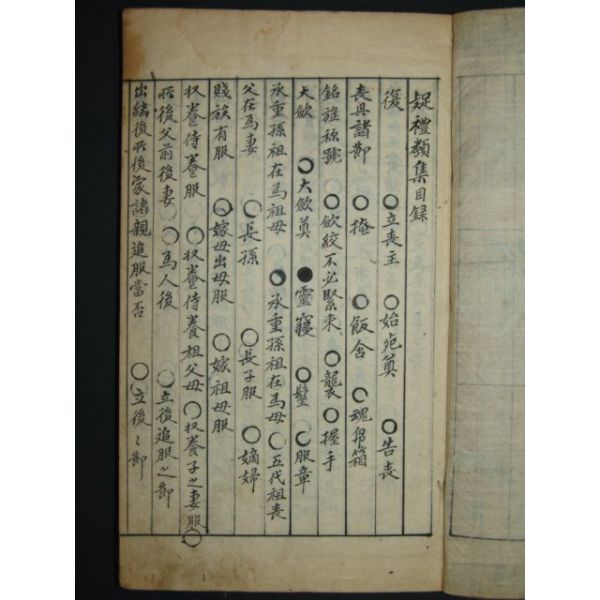 疑禮類集目录
復 ○立喪主 ○始死奠 ○告喪
喪具諸節 ○掩 ○飯含 ○魂帛箱
銘旌称號 ○斂絞不必緊束 ○襲 ○握手
大斂 ○大斂奠 ●靈寢 ○髽 ○服章
承重孫祖在爲祖母 ●承重孫祖在爲母 ○五代祖喪
父在爲妻 ○長孫 ○長子服 ○嫡婦
賤族有服 ○嫁母出母服 ○嫁祖母服
収養侍養服 ○収養侍養祖父母 ○収養子之妻服○
所後父前後妻 ○爲人後 ○立後追服之節
出継後所後家諸親追服當否 ○立後之節